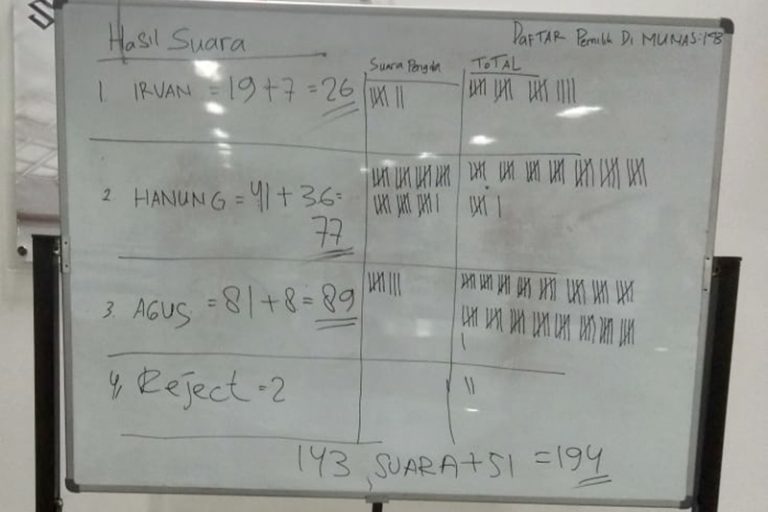 Hasil Suara
DAFTAR Pemilih Di MUNAS:
Suara Pengda
TOTAL
1. IRVAN = 19+7 = 26
2 HANUNG = 41 + 36 =
77
3. AGUS = 81+8 = 89
4, Reject = 2
143 SUARA + 51 = 194